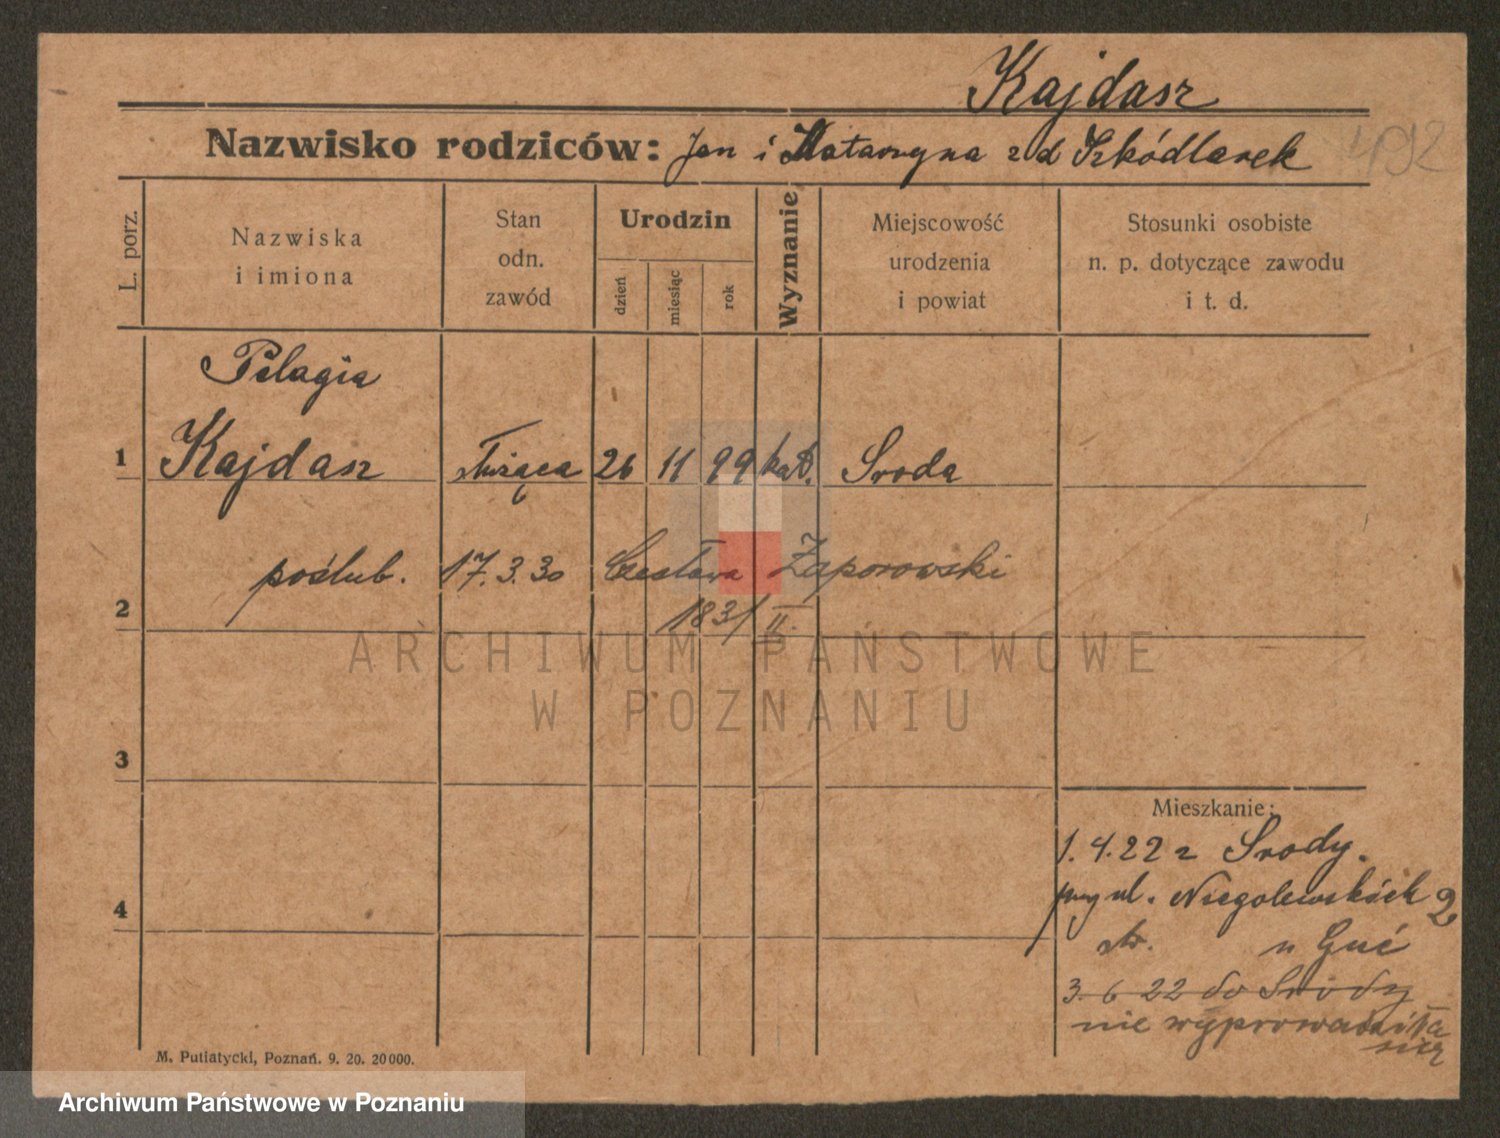 Kajdasz
Nazwisko rodziców: Jan i Katarzyna z d Szkódlarek
L. porz.
Nazwiska
i imiona
Stan
odn.
zawód
Urodzin
dzień
miesiąc
rok
Wyznanie
Miejscowość
urodzenia
i powiat
Stosunki osobiste
n. p. dotyczące zawodu
i t. d.
Pelagia
1 Kajdasz służąca 26 11 99 kat. Sroda
poślub. 17.3.30 Czesława Zaporowski
2 1831/II.
ARCHIWUM PAŃSTWOWE
W POZNANIU
3
Mieszkanie:
1.4.22 z Srody.
przy ul. Niegolewskich 2
4 str. u Guć
3.6 22 do Srody
nie wyprowadziła
się
M. Putiatycki, Poznań. 9. 20. 20000.
Archiwum Państwowe w Poznaniu